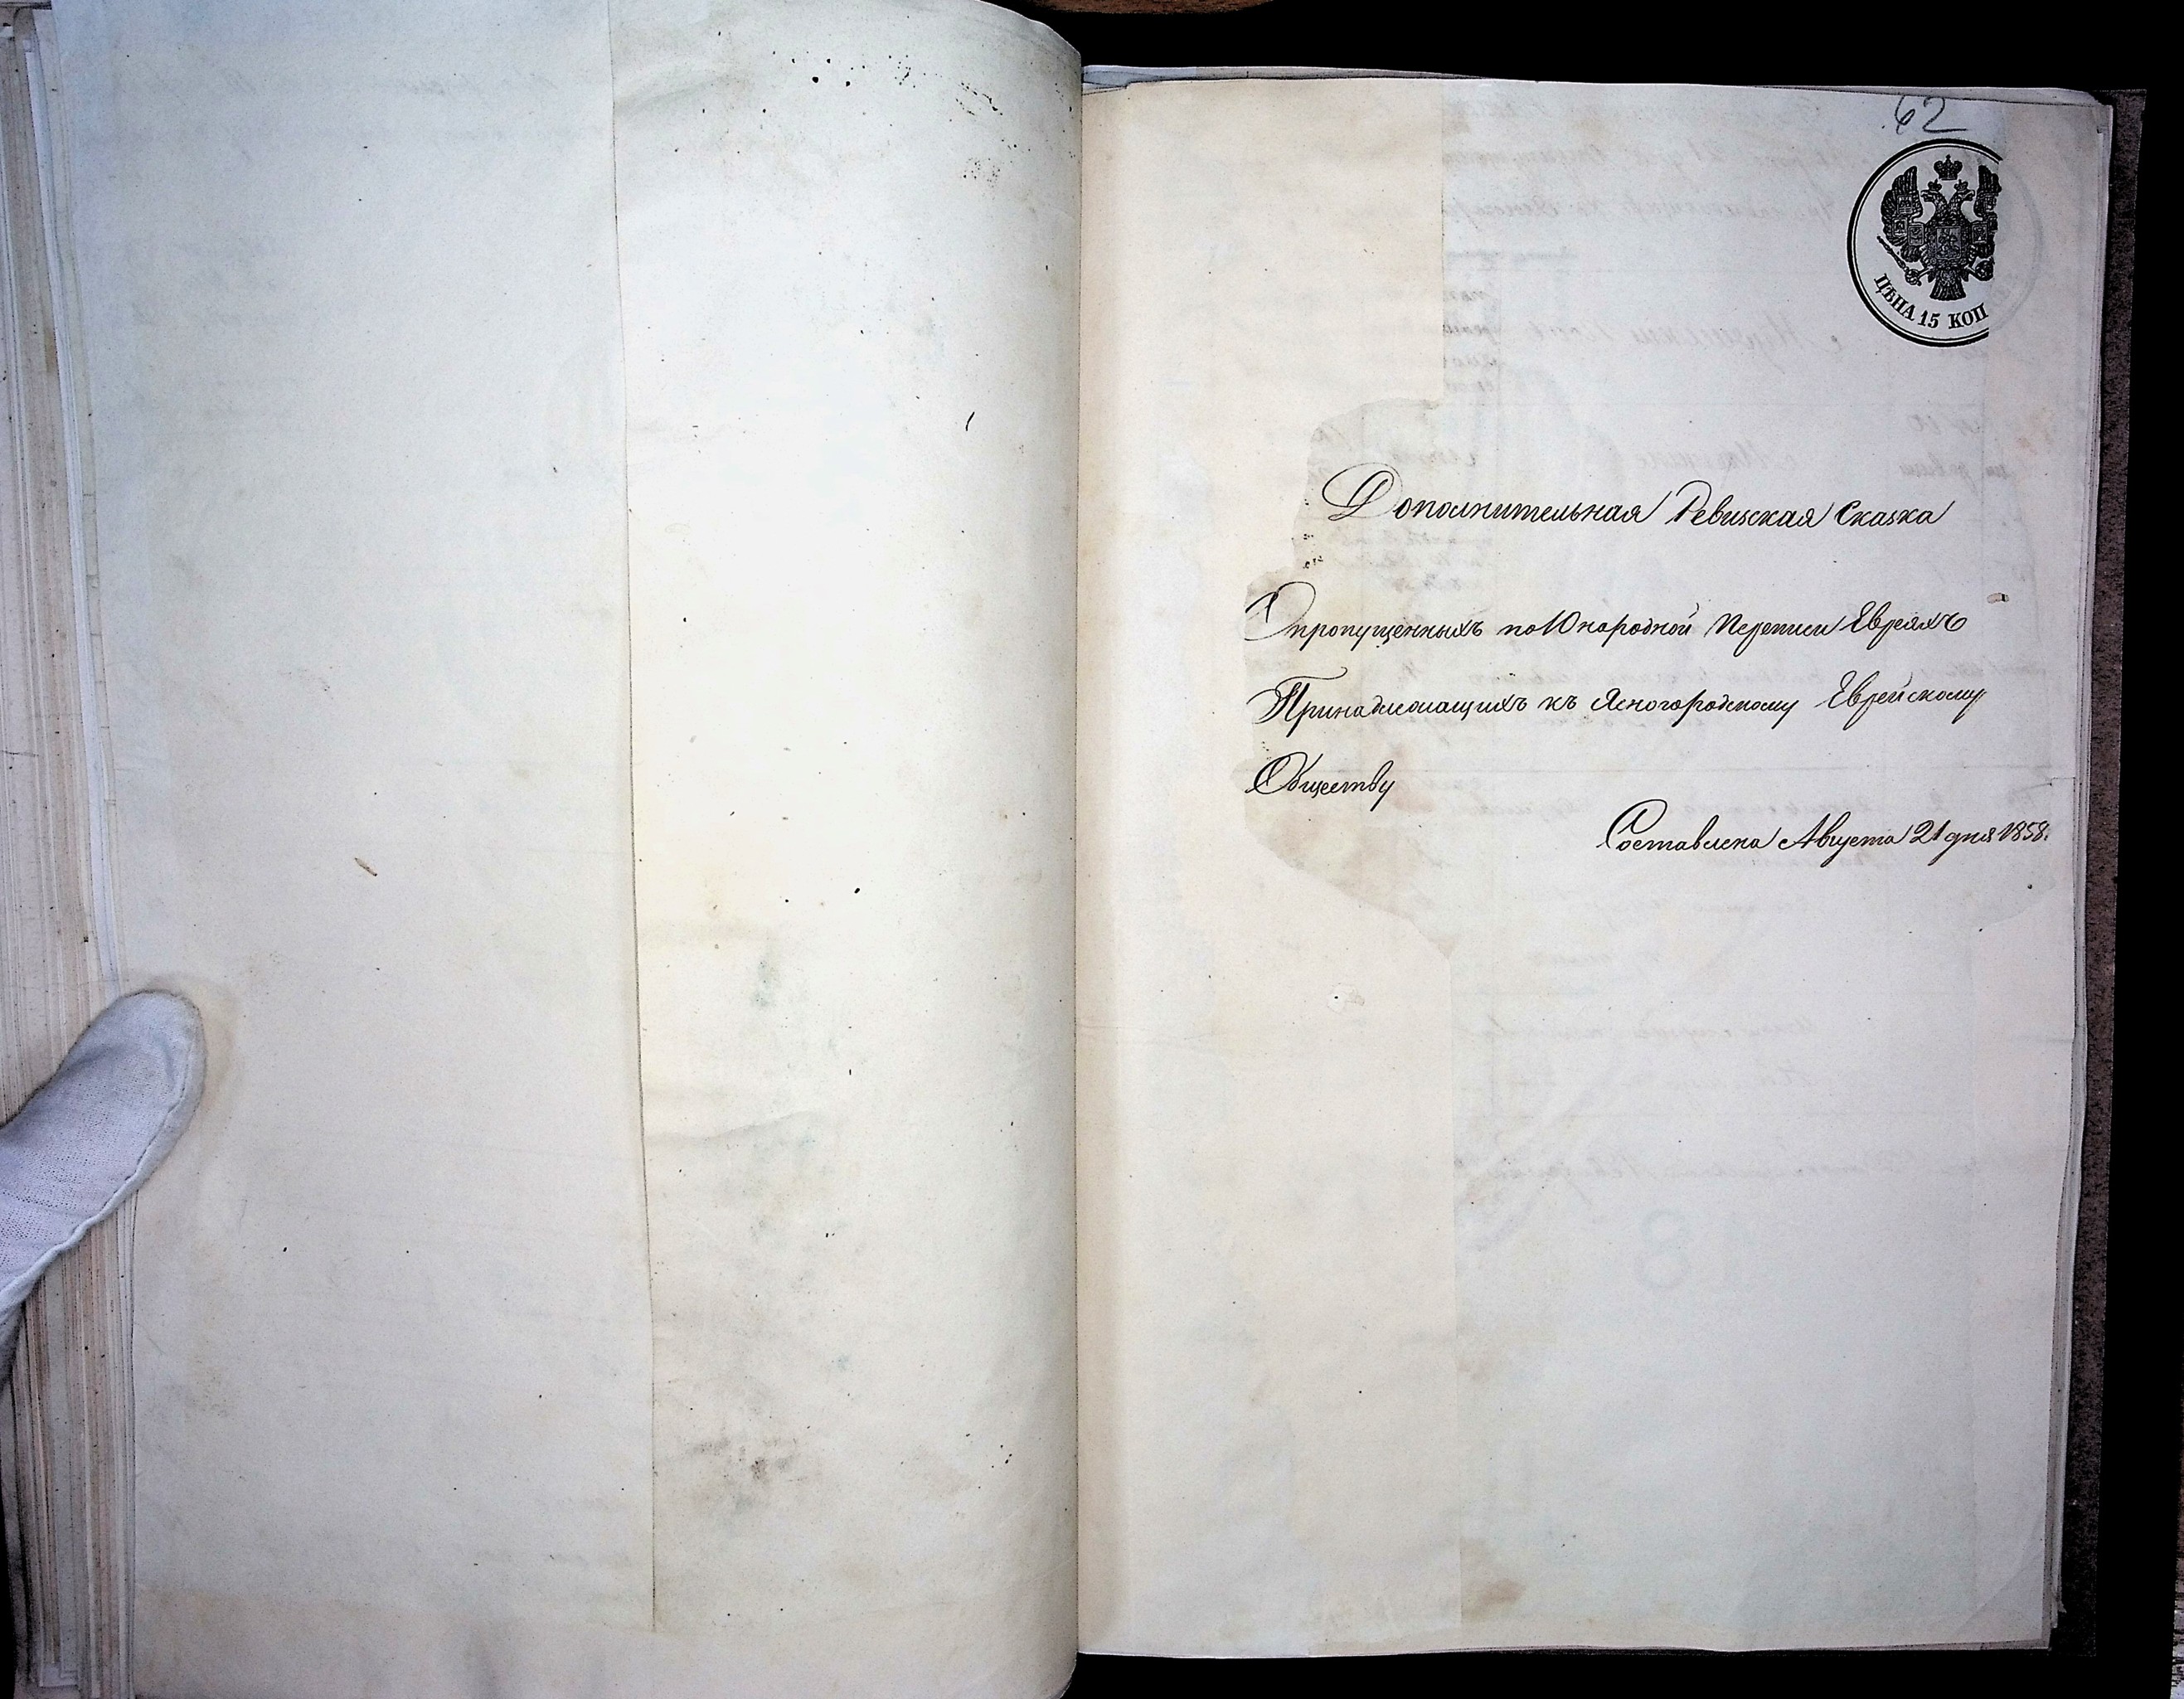 62
ЦѢНА 15 КОП
Дополнительная Ревизская Сказка
О пропущенныхъ по 10 народной переписи Евреяхъ
Принадлежащихъ къ Ясногородскому Еврейскому
Обществу
Составлена Августа 21 дня 1858.